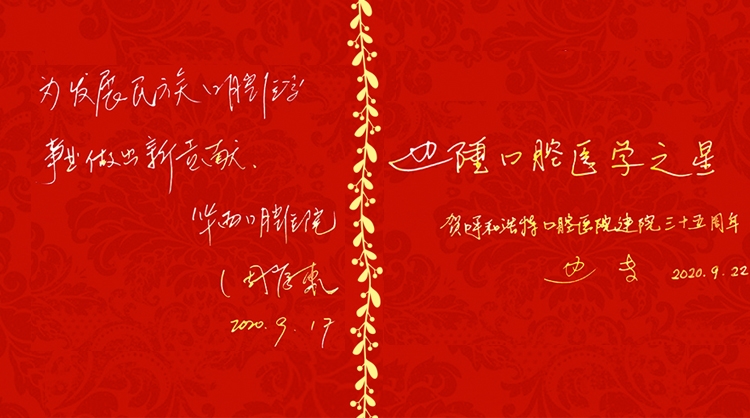 为发展民族口腔医学
事业做出新贡献.
华西口腔医院
2020.9.17
口腔医学之星
贺呼和浩特口腔医院建院三十五周年
2020.9.22